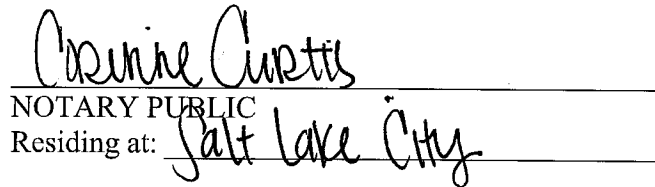 Corinne Curtis
NOTARY PUBLIC
Residing at: Salt Lake City